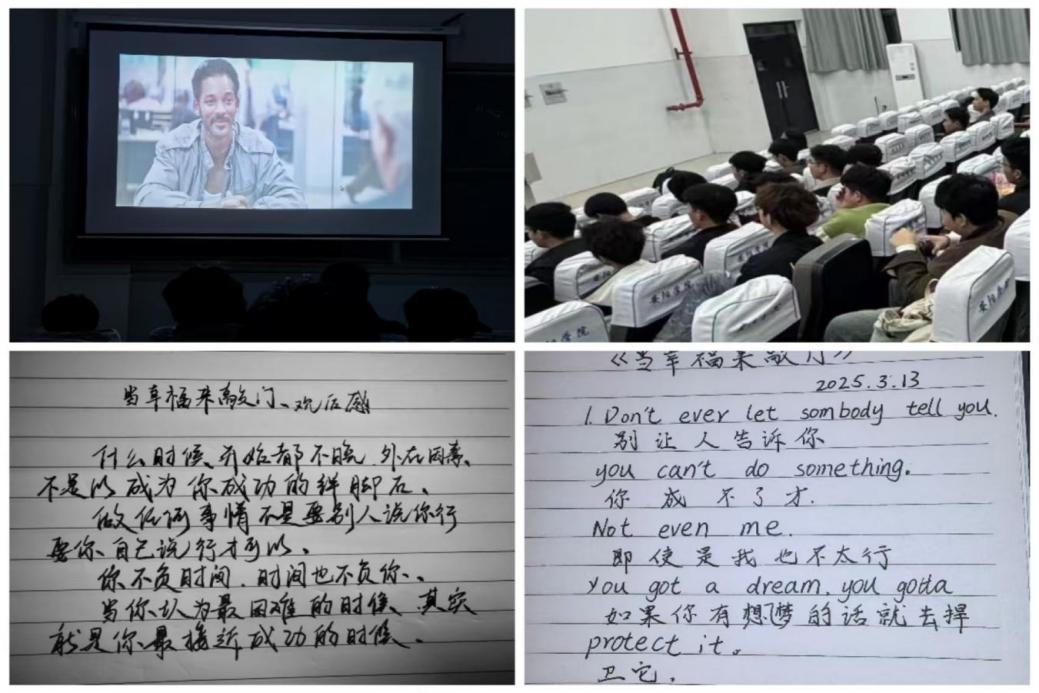 安阳学院
学院
当幸福来敲门、观后感
什么时候、开始都不晚、外在因素、
不足以成为你成功的绊脚石、
做任何事情不是要别人说你行
要你自己说行才可以、
你不负时间、时间也不负你、
当你认为最困难的时候、其实
就是你最接近成功的时候、
《当幸福来敲门》
2025.3.13
1. Don't ever let sombody tell you.
别让人告诉你
you can't do something.
你成不了才.
Not even me.
即使是我也不太行
You got a dream, you gotta
如果你有想梦的话就去捍
protect it。
卫它.